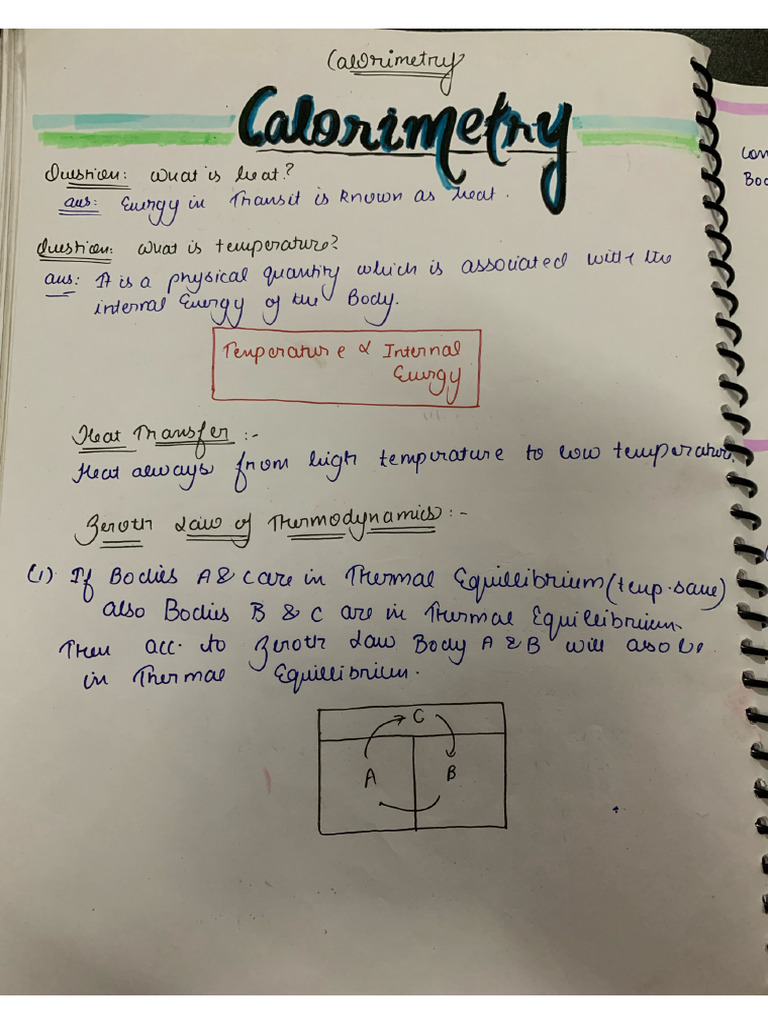 Calorimetry
Calorimetry
Question: What is heat?
ans: Energy in Transit is known as heat.
Question: What is temperature?
ans: It is a physical quantity which is associated with the
internal Energy of the Body.
Temperature ∝ Internal
Energy
Heat Transfer :-
Heat always from high temperature to low temperature.
Zeroth Law of Thermodynamics :-
(1) If Bodies A & C are in Thermal Equillibrium (temp. same)
also Bodies B & C are in Thermal Equilibrium.
Then acc. to Zeroth Law Body A & B will also be
in Thermal Equillibrium.
C
A B